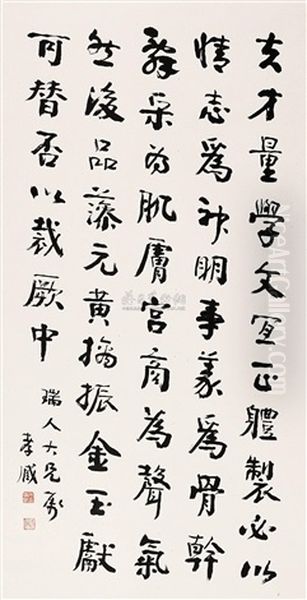 夫才量學文宜正體製必以
情志爲神明事義爲骨幹
辭采为肌膚宮商為聲氣
然後品藻元黃摛振金玉獻
可替否以裁厥中
瑞人大兄
孝臧